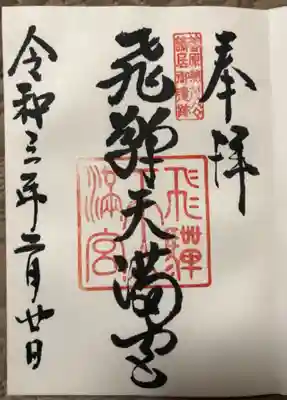 奉拝
飛驒天満宮
飛驒天満宮
令和三年二月廿日